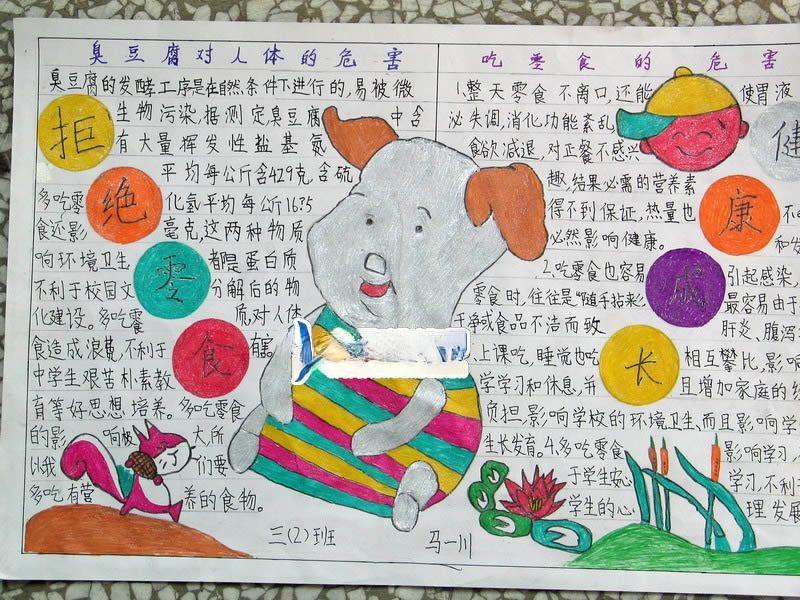 臭豆腐对人体的危害
臭豆腐的发酵工序是在自然条件下进行的,易被微
生物污染,据测定臭豆腐中含
有大量挥发性盐基氮
平均每公斤含429克,含硫
多吃零 化氢平均每公斤16?5
食还影 毫克,这两种物质
响环境卫生 都是蛋白质
不利于校园文 分解后的物
化建设。多吃零 质,对人体
食造成浪费,不利于 有害。
中学生艰苦朴素教
育等好思想培养。多吃零食
的影响极大,所
以我们要
多吃有营养的食物。
拒
绝
零
食
三(2)班 马一川
吃零食的危害
1.整天零食不离口,还能 使胃液
泌失调,消化功能紊乱
食欲减退,对正餐不感兴
趣,结果必需的营养素
得不到保证,热量也 不
必然影响健康。 和发
2.吃零食也容易 引起感染,
零食时,往往是随手拈来 最容易由于
干净或食品不洁而致 肝炎、腹泻
上课吃,睡觉也吃 相互攀比,影响
学学习和休息,并 且增加家庭的
负担,影响学校的环境卫生、而且影响学
生长发育。4.多吃零食 影响学习,
于学生安心 学习,不利于
学生的心 理发展
健
康
成
长